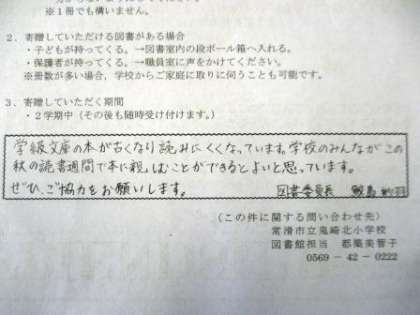 ※1冊でも構いません。
2.寄贈していただける図書がある場合
・子どもが持ってくる。→図書室内の段ボール箱へ入れる。
・保護者が持ってくる。→職員室に声をかけてください。
※冊数が多い場合，学校からご家庭に取りに伺うことも可能です。
3.寄贈していただく期間
・2学期中（その後も随時受け付けます。）
学級文庫の本が古くなり読みにくくなっています。学校のみんながこの
秋の読書週間で本に親しむことができるとよいと思っています。
ぜひ、ご協力をお願いします。
図書委員長
（この件に関する問い合わせ先）
常滑市立鬼崎北小学校
図書館担当 都築美智子
0569-42-0222